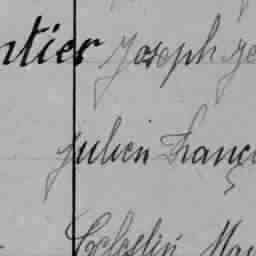 ntier Joseph Je
Julien Franç
Célestin Ma